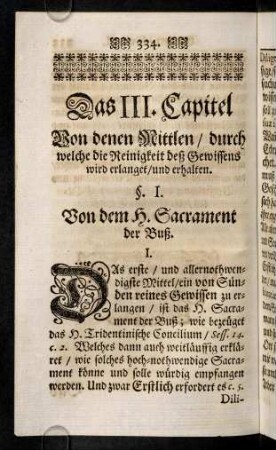 334.
Das III. Capitel
Von denen Mittlen / durch
welche die Reinigkeit deß Gewissens
wird erlanget / und erhalten.
§. I.
Von dem H. Sacrament
der Buß.
I.
DAs erste / und allernothwen-
digste Mittel / ein von Sün-
den reines Gewissen zu er-
langen / ist das H. Sacra-
ment der Buß ; wie bezeüget
das H. Tridentinische Concilium / Sess. 14.
c. 2. Welches dann auch weitläuffig erklä-
ret / wie solches hoch-nothwendige Sacra-
ment könne und solle würdig empfangen
werden. Und zwar Erstlich erfordert es c. 5.
Dili-